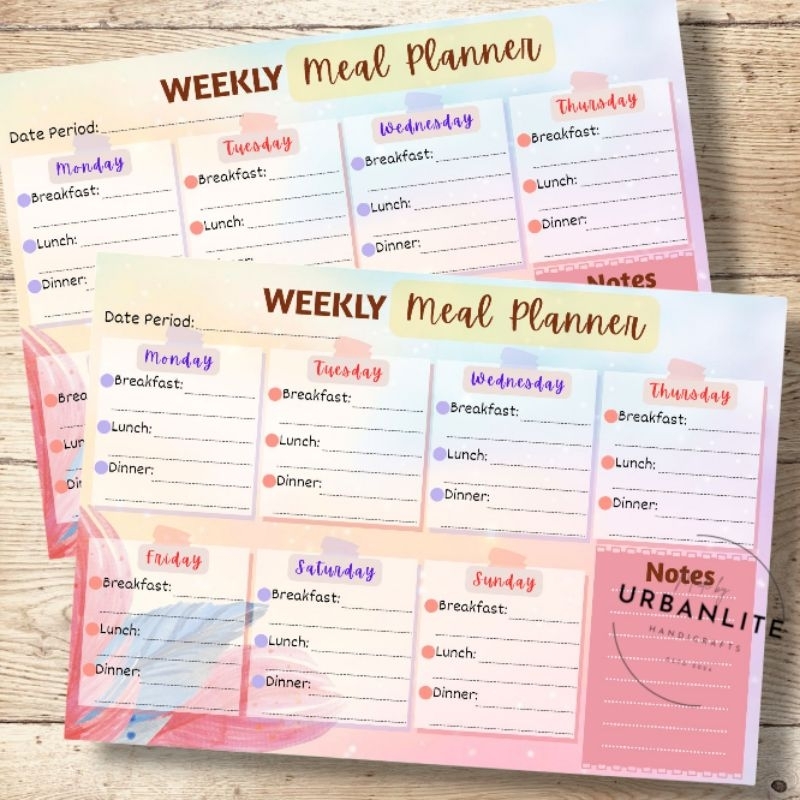 WEEKLY Meal Planner
Date Period:
Monday Tuesday Wednesday Thursday
Breakfast: Breakfast: Breakfast: Breakfast:
Lunch: Lunch: Lunch: Lunch:
Dinner: Dinner: Dinner: Dinner:
Notes
Brea
Lun
Di
WEEKLY Meal Planner
Date Period:
Monday Tuesday Wednesday Thursday
Breakfast: Breakfast: Breakfast: Breakfast:
Lunch: Lunch: Lunch: Lunch:
Dinner: Dinner: Dinner: Dinner:
Friday Saturday Sunday Notes
Breakfast: Breakfast: Breakfast:
Lunch: Lunch: Lunch:
Dinner: Dinner: Dinner:
URBANLITE
HANDICRAFTS